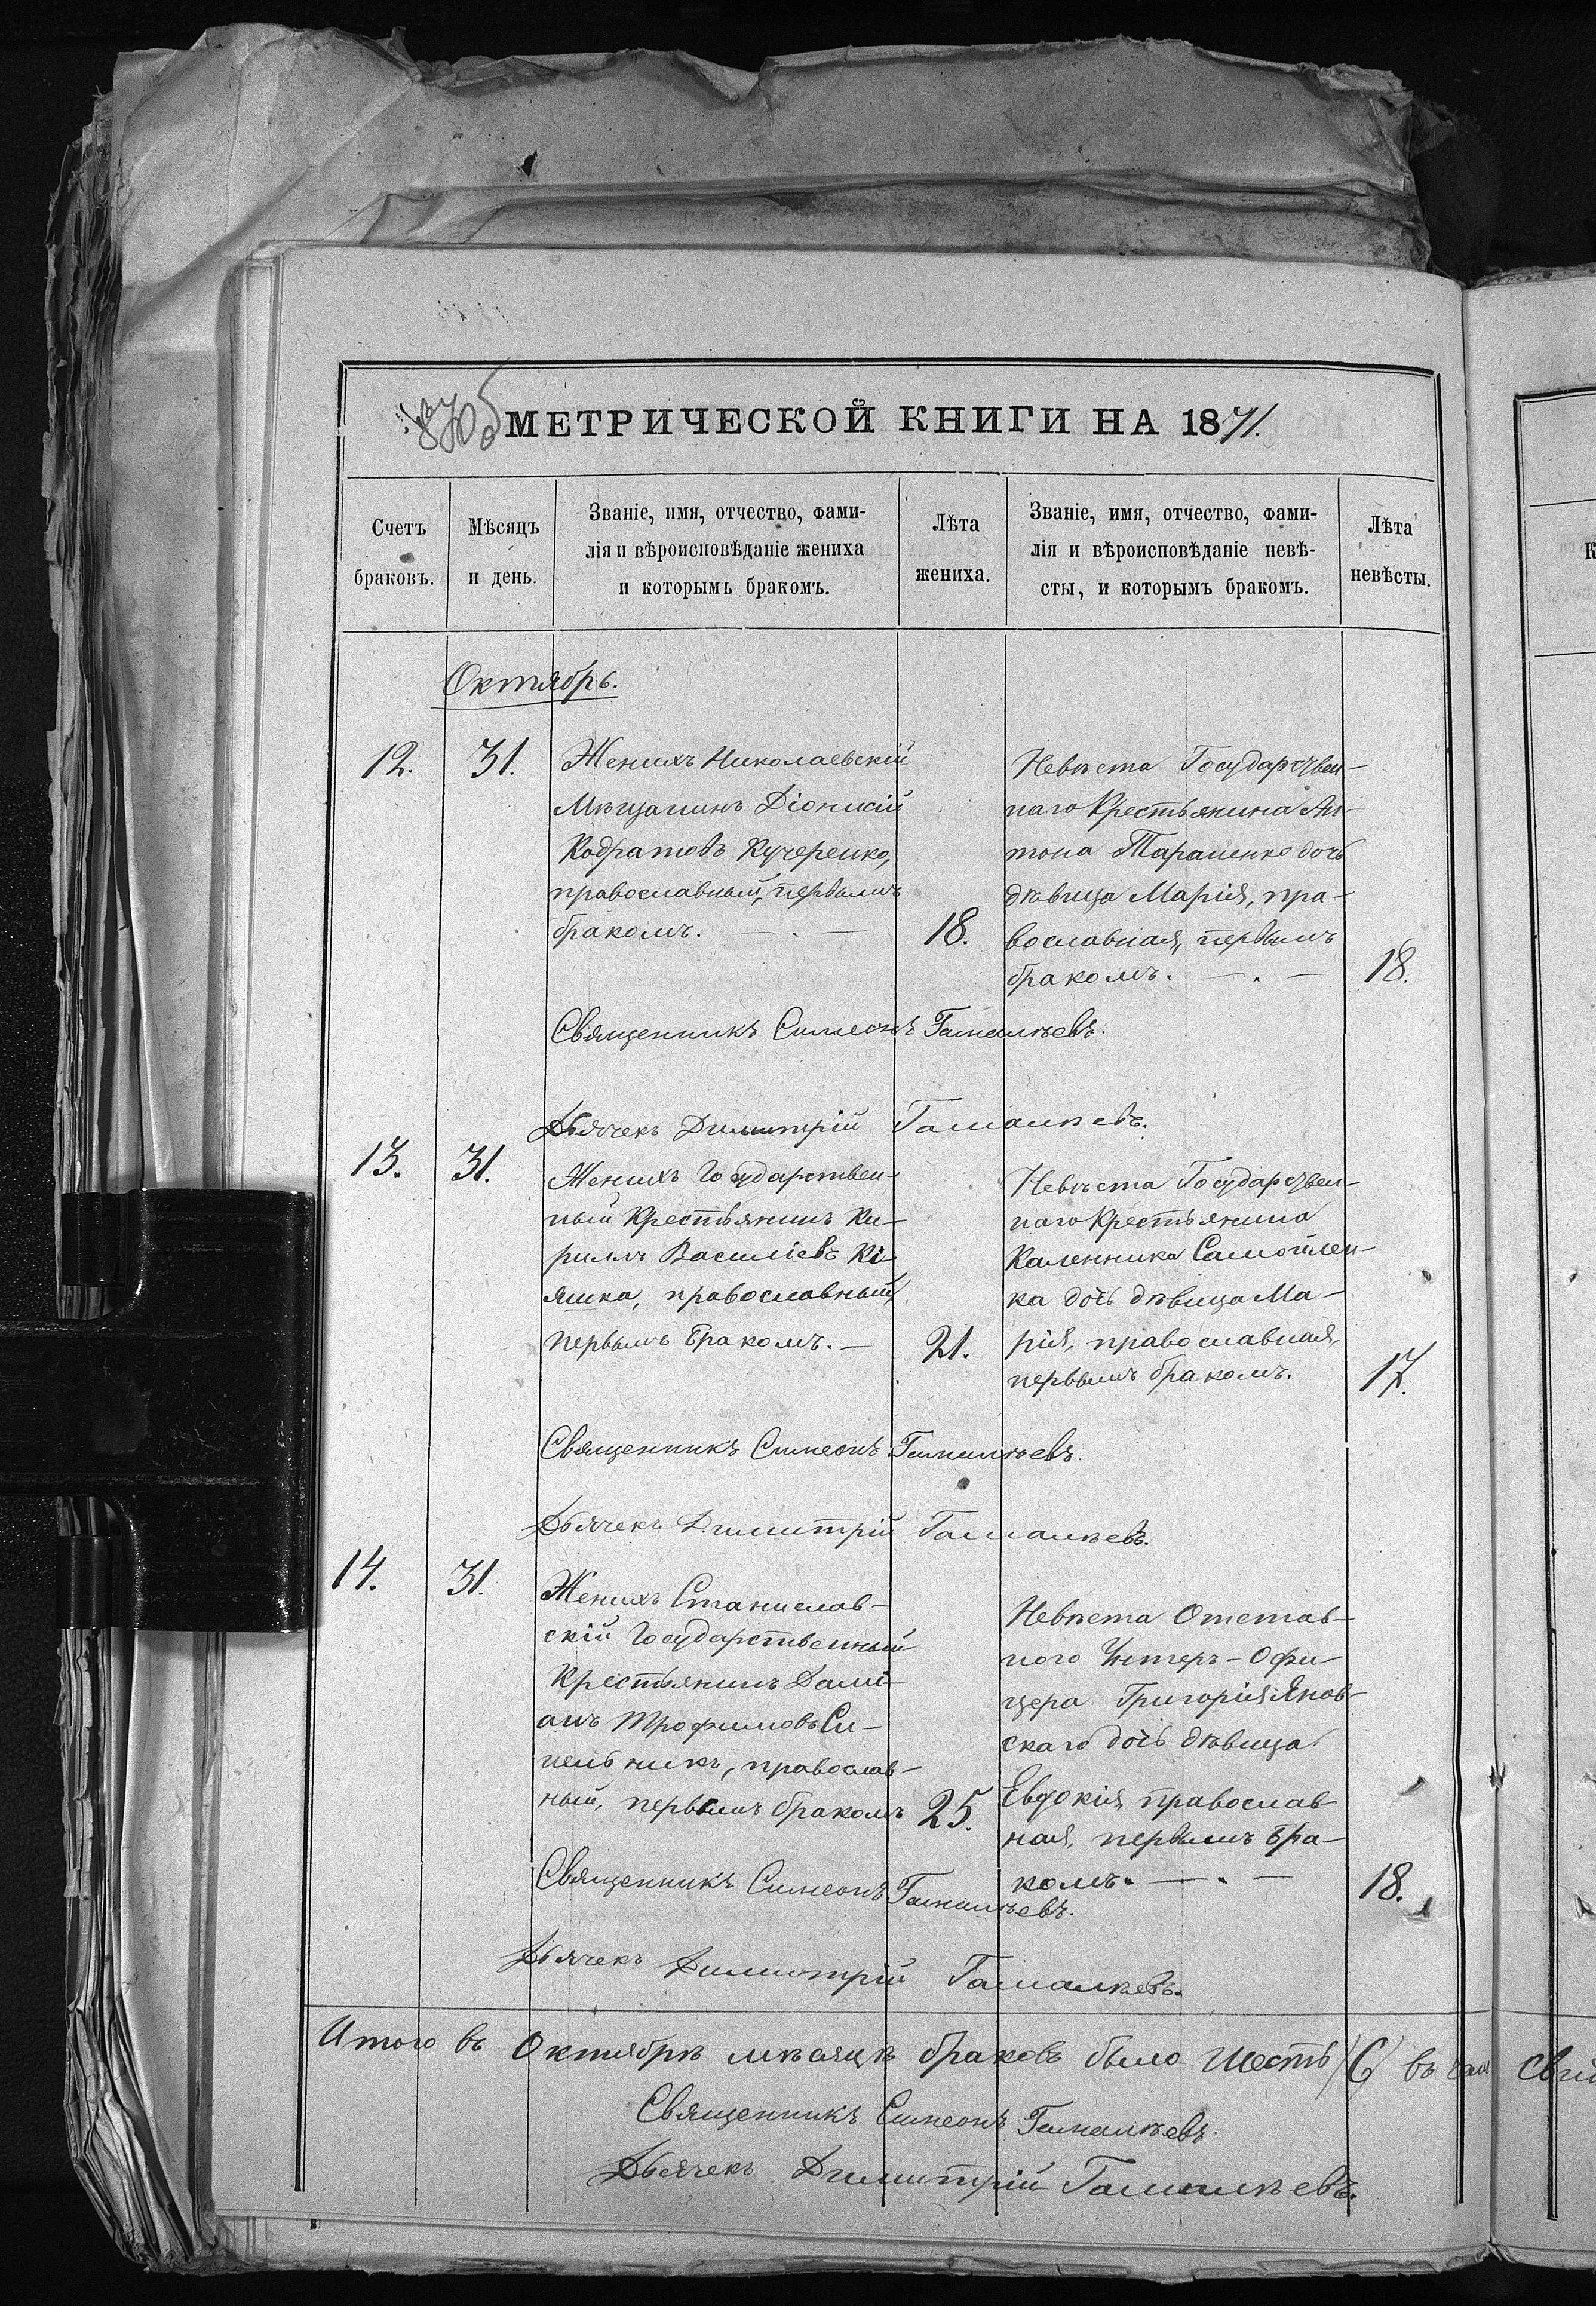 870 об
МЕТРИЧЕСКОЙ КНИГИ НА 1871.
Счетъ
браковъ.
Мѣсяцъ
и день.
Званіе, имя, отчество, фами-
лія и вѣроисповѣданіе жениха
и которымъ бракомъ.
Лѣта
жениха.
Званіе, имя, отчество, фами-
лія и вѣроисповѣданіе невѣ-
сты, и которымъ бракомъ.
Лѣта
невѣсты.
Октябрь.
12.
31.
Женихъ Николаевскій
Мѣщанинъ Діонисій
Кодратовъ Кучеренко,
православный, первымъ
бракомъ. — . —
18.
Невѣста Государствен-
наго Крестьянина Ан-
тона Тараненко дочь
дѣвица Марія, пра-
вославная, первымъ
бракомъ. — . —
18.
Священникъ Симеонъ Гамалѣевъ.
Дьячекъ Димитрій Гамалѣевъ.
13.
31.
Женихъ Государствен-
ный Крестьянинъ Ки-
рилъ Василіевъ Кі-
яшка, православный,
первымъ бракомъ. —
21.
Невѣста Государствен-
наго Крестьянина
Каленника Самойлен-
ка дочь дѣвица Ма-
рія, православная,
первымъ бракомъ.
17.
Священникъ Симеонъ Гамалѣевъ.
Дьячекъ Димитрій Гамалѣевъ.
14.
31.
Женихъ Станислав-
скій Государственный
Крестьянинъ Дамі-
анъ Трофимовъ Си-
нельникъ, православ-
ный, первымъ бракомъ
25.
Невѣста Отстав-
ного Унтеръ-Офи-
цера Григорія Янов-
скаго дочь дѣвица
Евдокія, православ-
ная, первымъ бра-
комъ. — . —
18.
Священникъ Симеонъ Гамалѣевъ.
Дьячекъ Димитрій Гамалѣевъ.
Итого въ Октябрѣ мѣсяцѣ браковъ было шесть (6) въ
Священникъ Симеонъ Гамалѣевъ.
Дьячекъ Димитрій Гамалѣевъ.